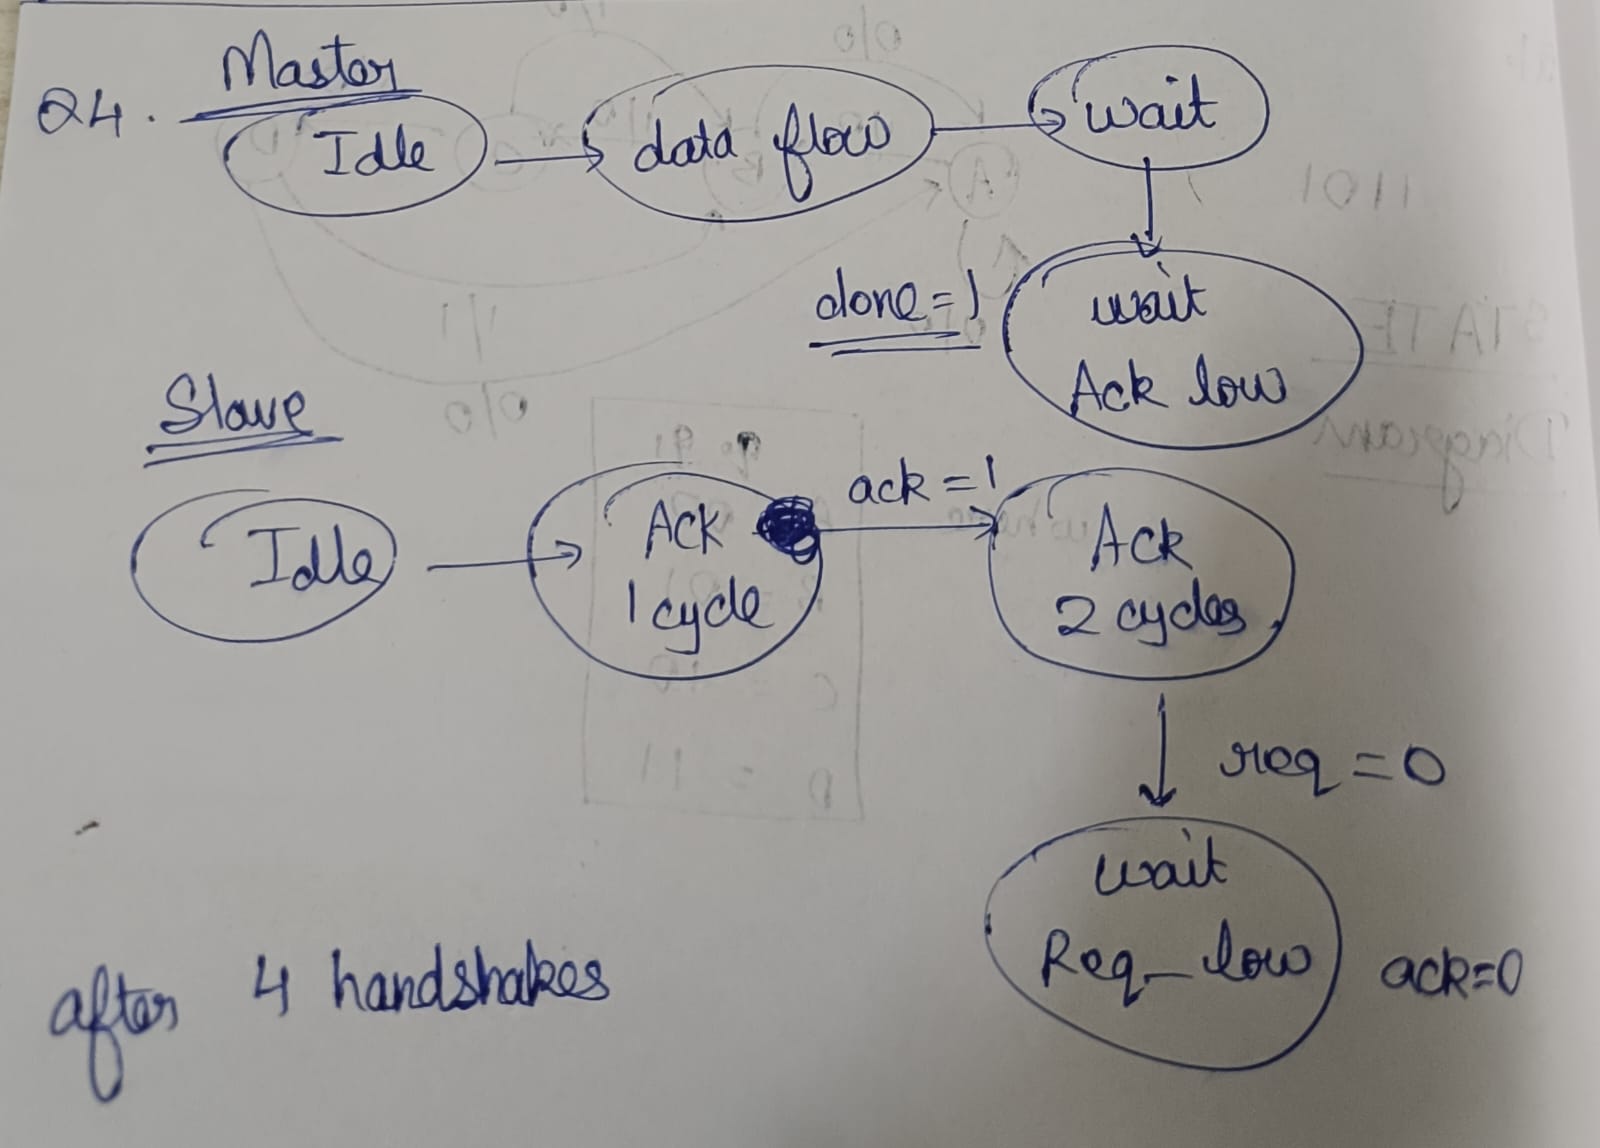 Q4. Master
Idle
data flow
wait
wait
Ack low
done = 1
Slave
Idle
Ack
1 cycle
ack = 1
Ack
2 cycles
req = 0
wait
Req_low
ack=0
after 4 handshakes